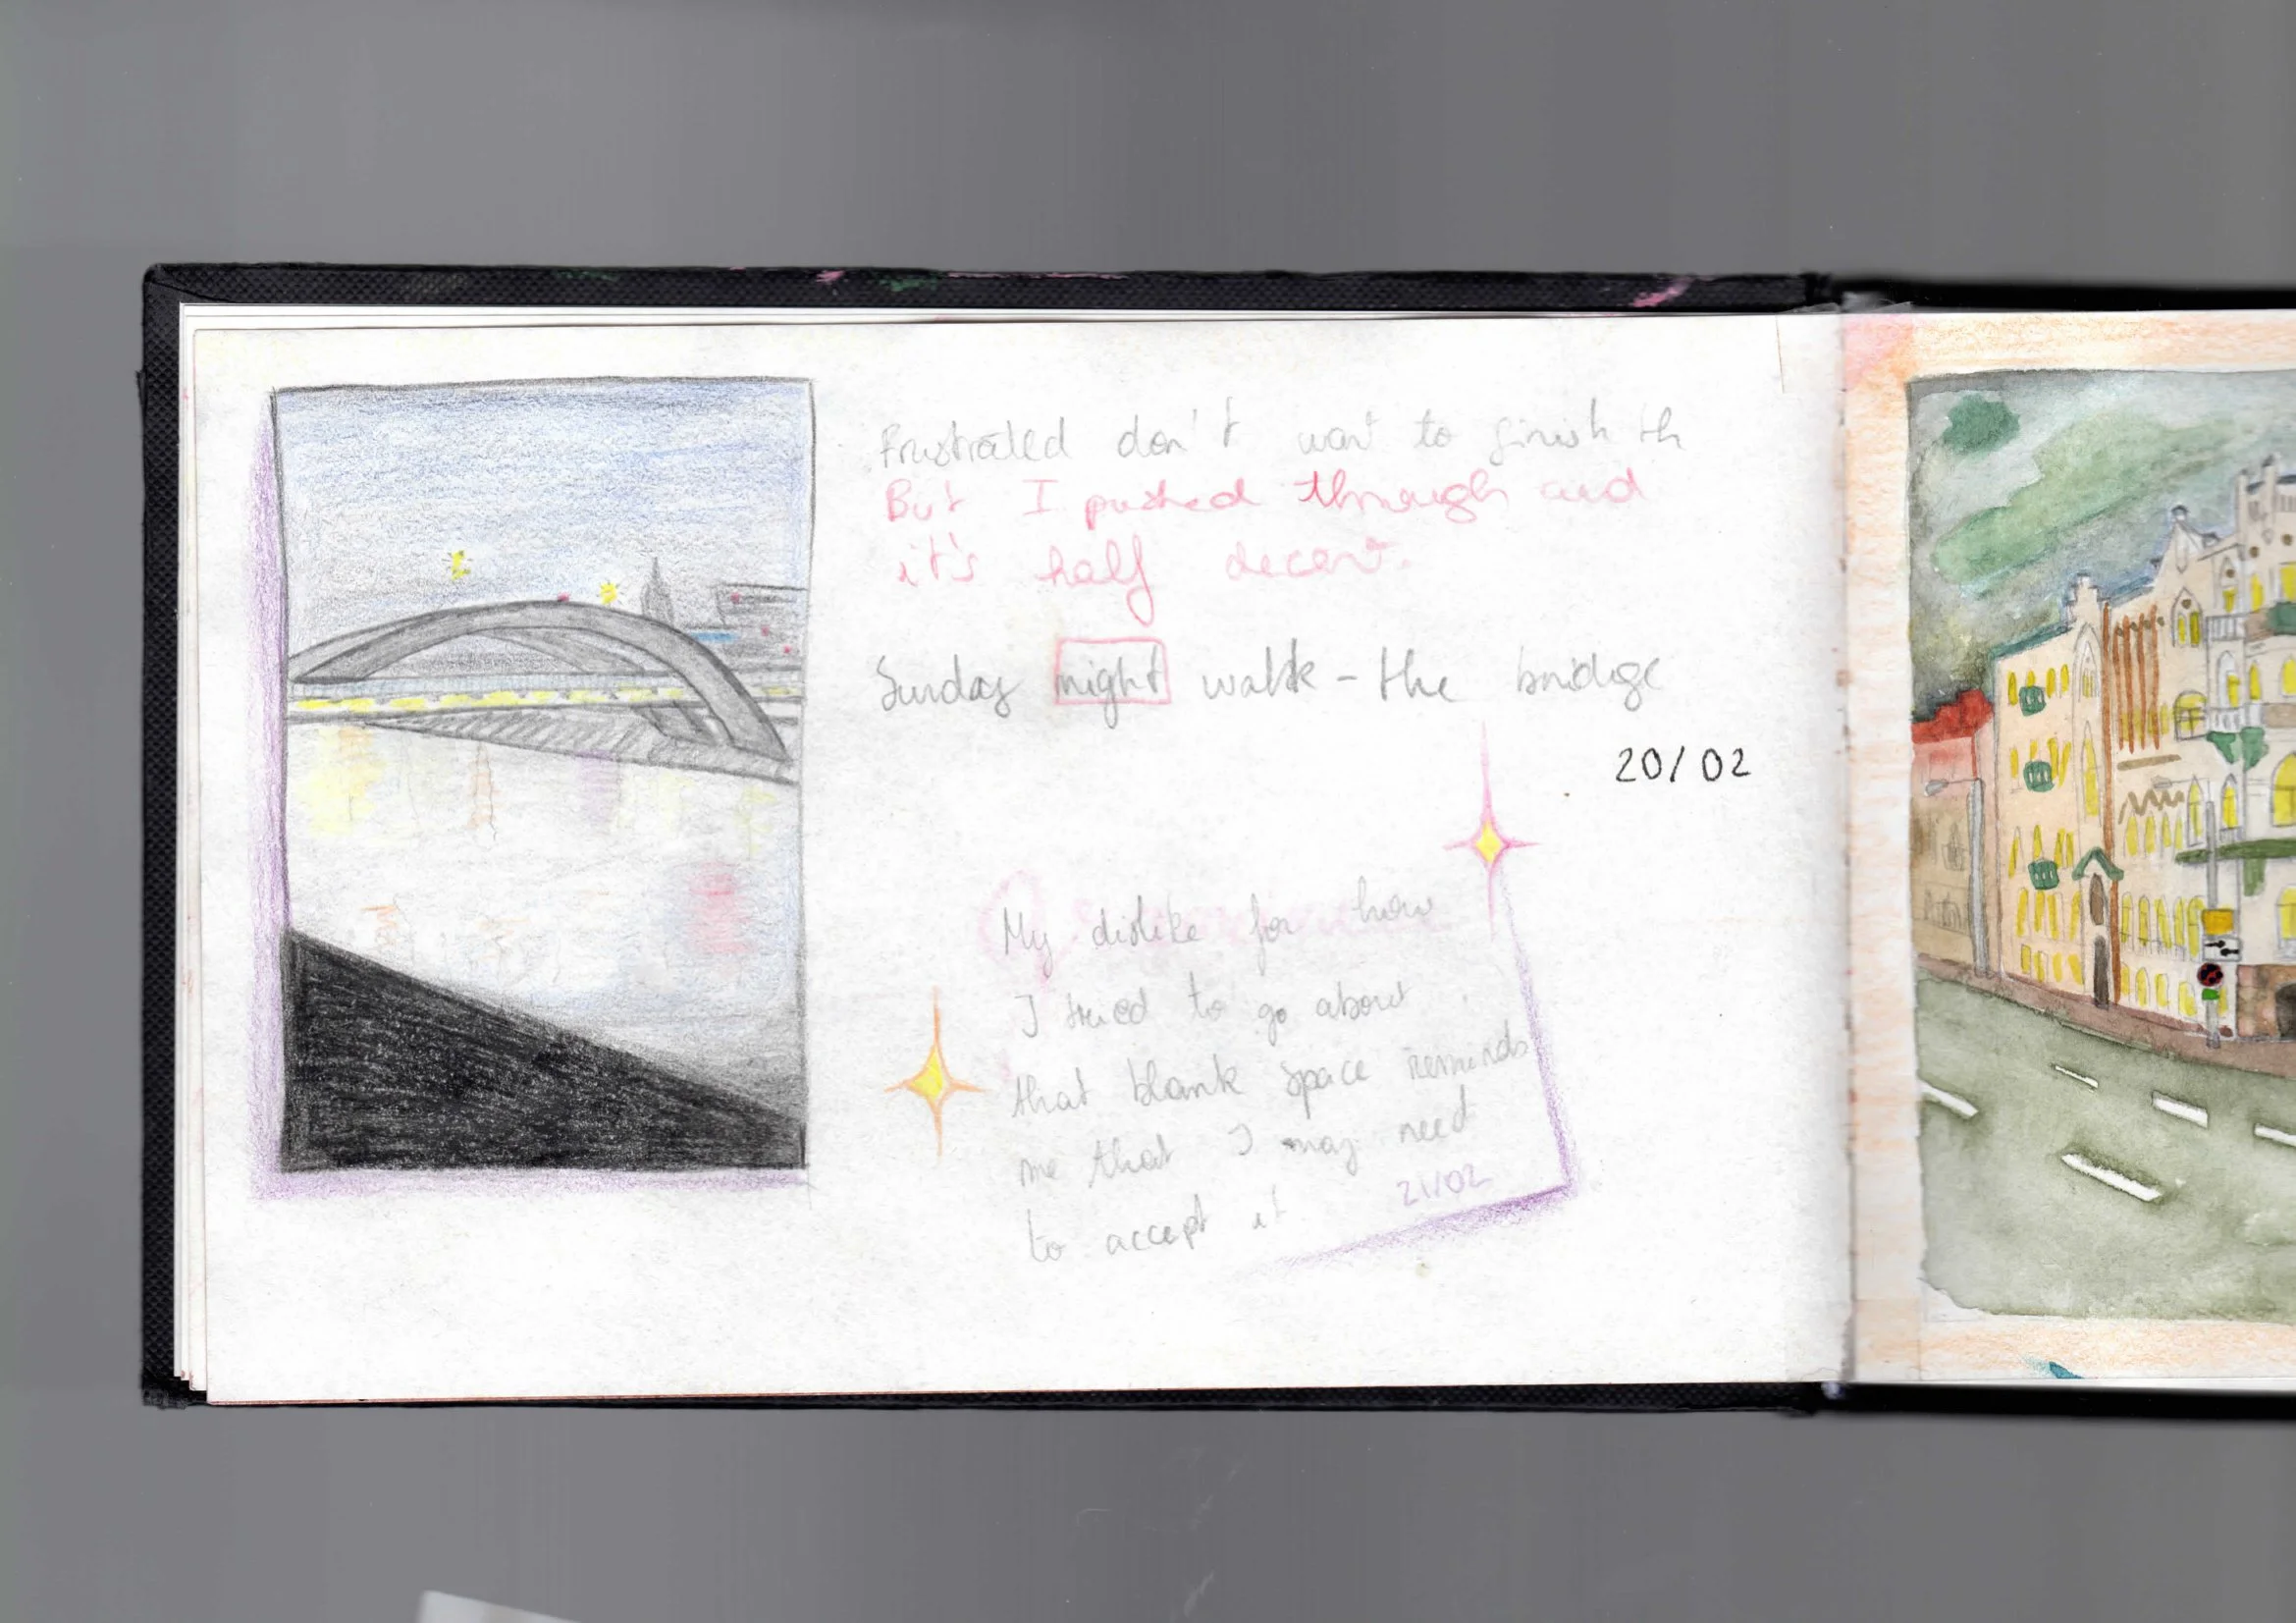 Frustrated don't want to finish th
But I pushed through and
it's half decent.
Sunday night walk - the bridge
20/02
My dislike for how
I tried to go about
that blank space reminds
me that I may need
to accept it.
21/02